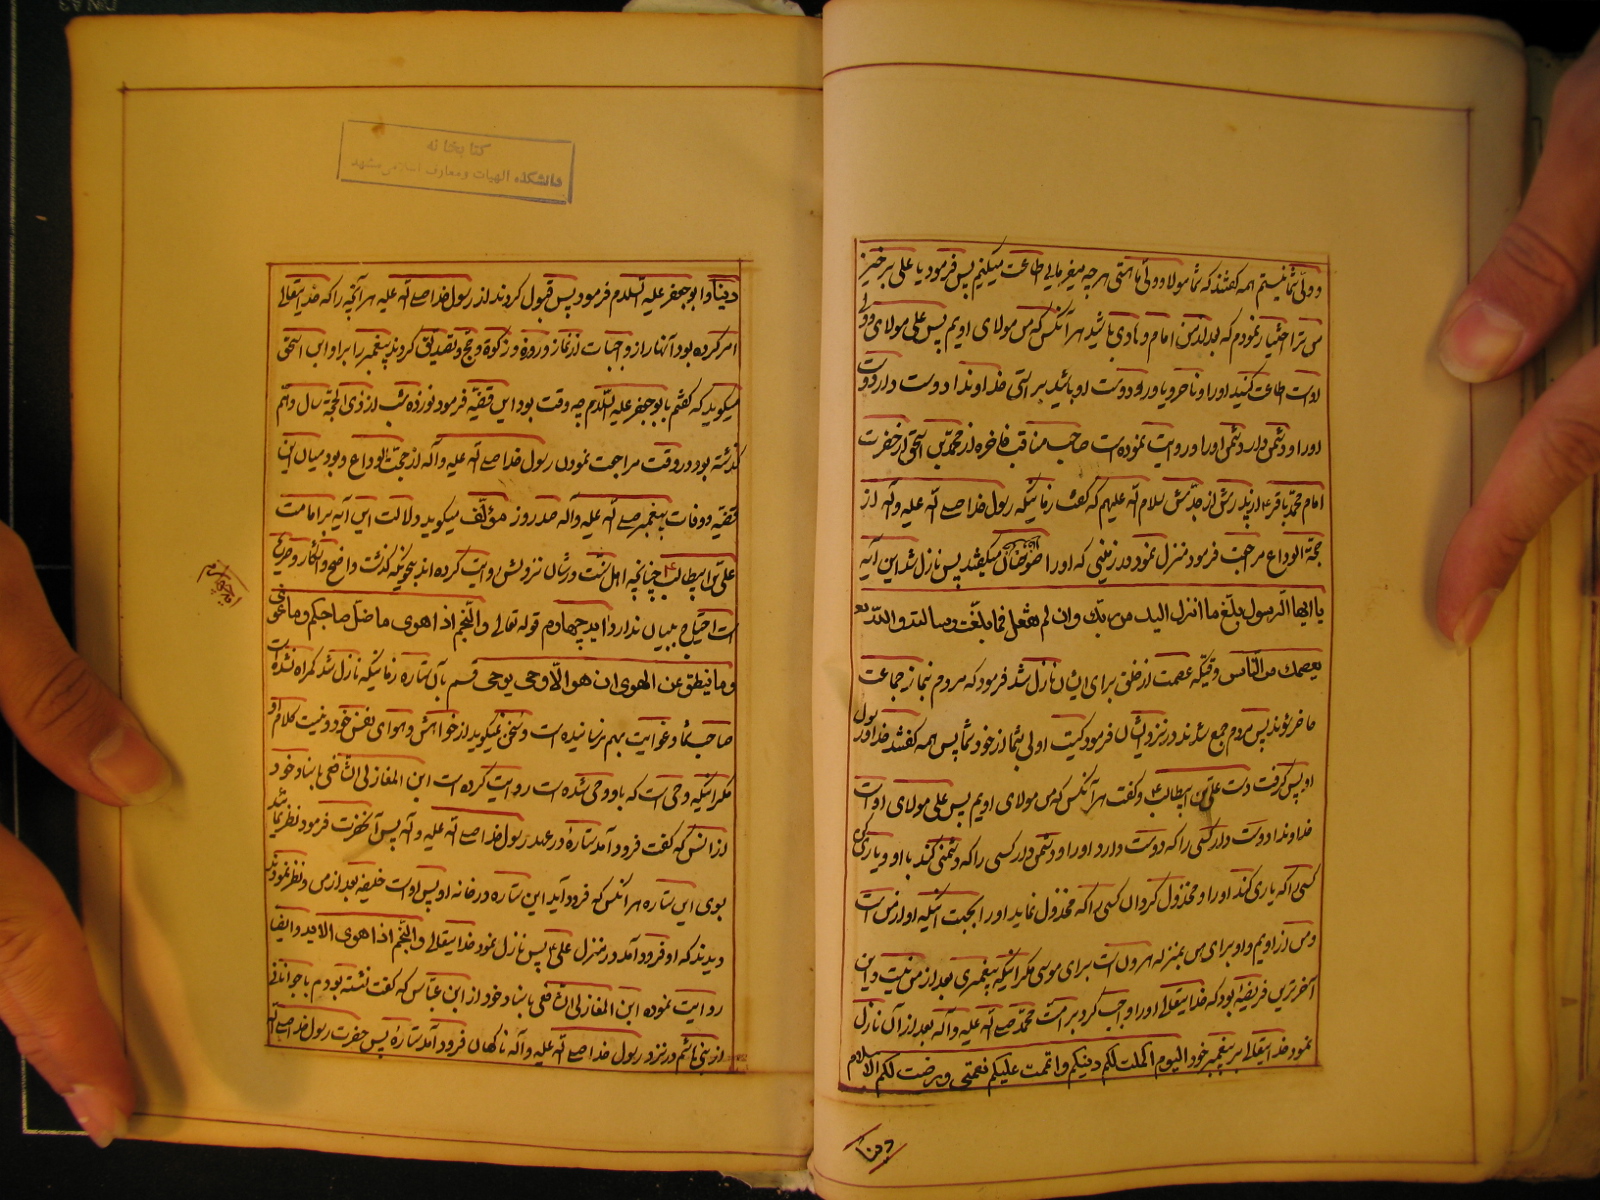 و ولی شما نیستم همه گفتند که شما مولا و ولی ما هستی هر چه میفرمایی اطاعت میکنیم پس فرمود یا علی برخیز
من ترا اختیار نمودم که بعد از من امام و هادی باشید هر آنکس که من مولای اویم پس علی مولای و ولی
اوست اطاعت کنید او را و ناصر و یاور و دوست او باشید براستی خداوندا دوست دار دوست
او را و دشمن دار دشمن او را و روایت نموده است صاحب مناقب فاخره از محمد بن اسحق از حضرت
امام محمد باقر ع از پدرش از جدش سلام الله علیهم که گفت زمانیکه رسول خدا صلی الله علیه و آله از
حجة الوداع مراجعت فرمود منزل نمود در زمینی که او را میگفتند پس نازل شد این آیه
یا ایها الرسول بلغ ما انزل الیک من ربک وان لم تفعل فما بلغت رسالته والله
یعصمک من الناس وقتیکه عصمت از خلق برای ایشان نازل شد فرمود که مردم بنماز جماعت
حاضر شوند پس مردم جمع شدند در نزد ایشان فرمود کیست اولی بشما از خود شما پس همه گفتند خدا و رسول
او پس گرفت دست علی بن ابیطالب ع و گفت هر آنکس که من مولای اویم پس علی مولای اوست
خداوندا دوست دار کسی را که دوست دارد او را و دشمن دار کسی را که دشمنی کند با او و یاری کن
کسی را که یاری کند او را و مخذول گردان کسی را که مخذول نماید او را بجهت اینکه او از من است
و من از اویم و او برای من بمنزله هرون است برای موسی مگر اینکه پیغمبری بعد از من نیست و این
آخرترین فریضه بود که خدایتعالی او را واجب کرد بر امت محمد صلی الله علیه و آله بعد از آن نازل
نمود خدایتعالی بر پیغمبر خود الیوم اکملت لکم دینکم واتممت علیکم نعمتی ورضیت لکم الاسلام
دینا
کتابخانه
دانشکده الهیات و معارف اسلامی مشهد
دینا و ابو جعفر علیه السلام فرمود پس قبول کردند از رسول خدا صلی الله علیه هر آنچه را که خدایتعالی
امر کرده بود آنها را از واجبات از نماز و روزه و زکوة و حج و تصدیق کردند پیغمبر را بر او ابن اسحق
میگوید که گفتم بابو جعفر علیه السلام چه وقت بود این قضیه فرمود نوزده شب از ذی الحجة سال دهم
گذشته بود در وقت مراجعت نمودن رسول خدا صلی الله علیه و آله از حجت الوداع و بود میان این
قضیه و وفات پیغمبر صلی الله علیه و آله صد روز مؤلف میگوید دلالت این آیه بر امامت
علی بن ابیطالب ع چنانچه اهل سنت در شان نزولش روایت کرده اند بنحویکه گذشت واضح و آشکار و صریح
است احتیاج ببیان ندارد آیه چهارم قوله تعالی والنجم اذا هوی ما ضل صاحبکم وما غوی
وما ینطق عن الهوی ان هو الا وحی یوحی قسم بآن ستاره زمانیکه نازل شد گمراه نشده است
صاحب شما و غوایت بهم نرسانیده است و سخن نمیگوید از خواهش و هوای نفس خود و نیست کلام او
مگر اینکه وحی است که باو وحی شده است روایت کرده است ابن المغازلی الشافعی باسناد خود
از انس که گفت فرود آمد ستاره در عهد رسول خدا صلی الله علیه و آله پس آنحضرت فرمود نظر نمائید
بسوی این ستاره هر آنکس که فرود آید این ستاره در خانه او پس اوست خلیفه بعد از من و نظر نمودند
دیدند که او فرود آمد در منزل علی ع پس نازل نمود خدایتعالی والنجم اذا هوی الایه و ایضا
روایت نموده ابن المغازلی الشافعی باسناد خود از ابن عباس که گفت نشسته بودم با جوانانی
از بنی هاشم در نزد رسول خدا صلی الله علیه و آله ناگهان فرود آمد ستاره پس حضرت رسول خدا صلی الله
آیه چهارم